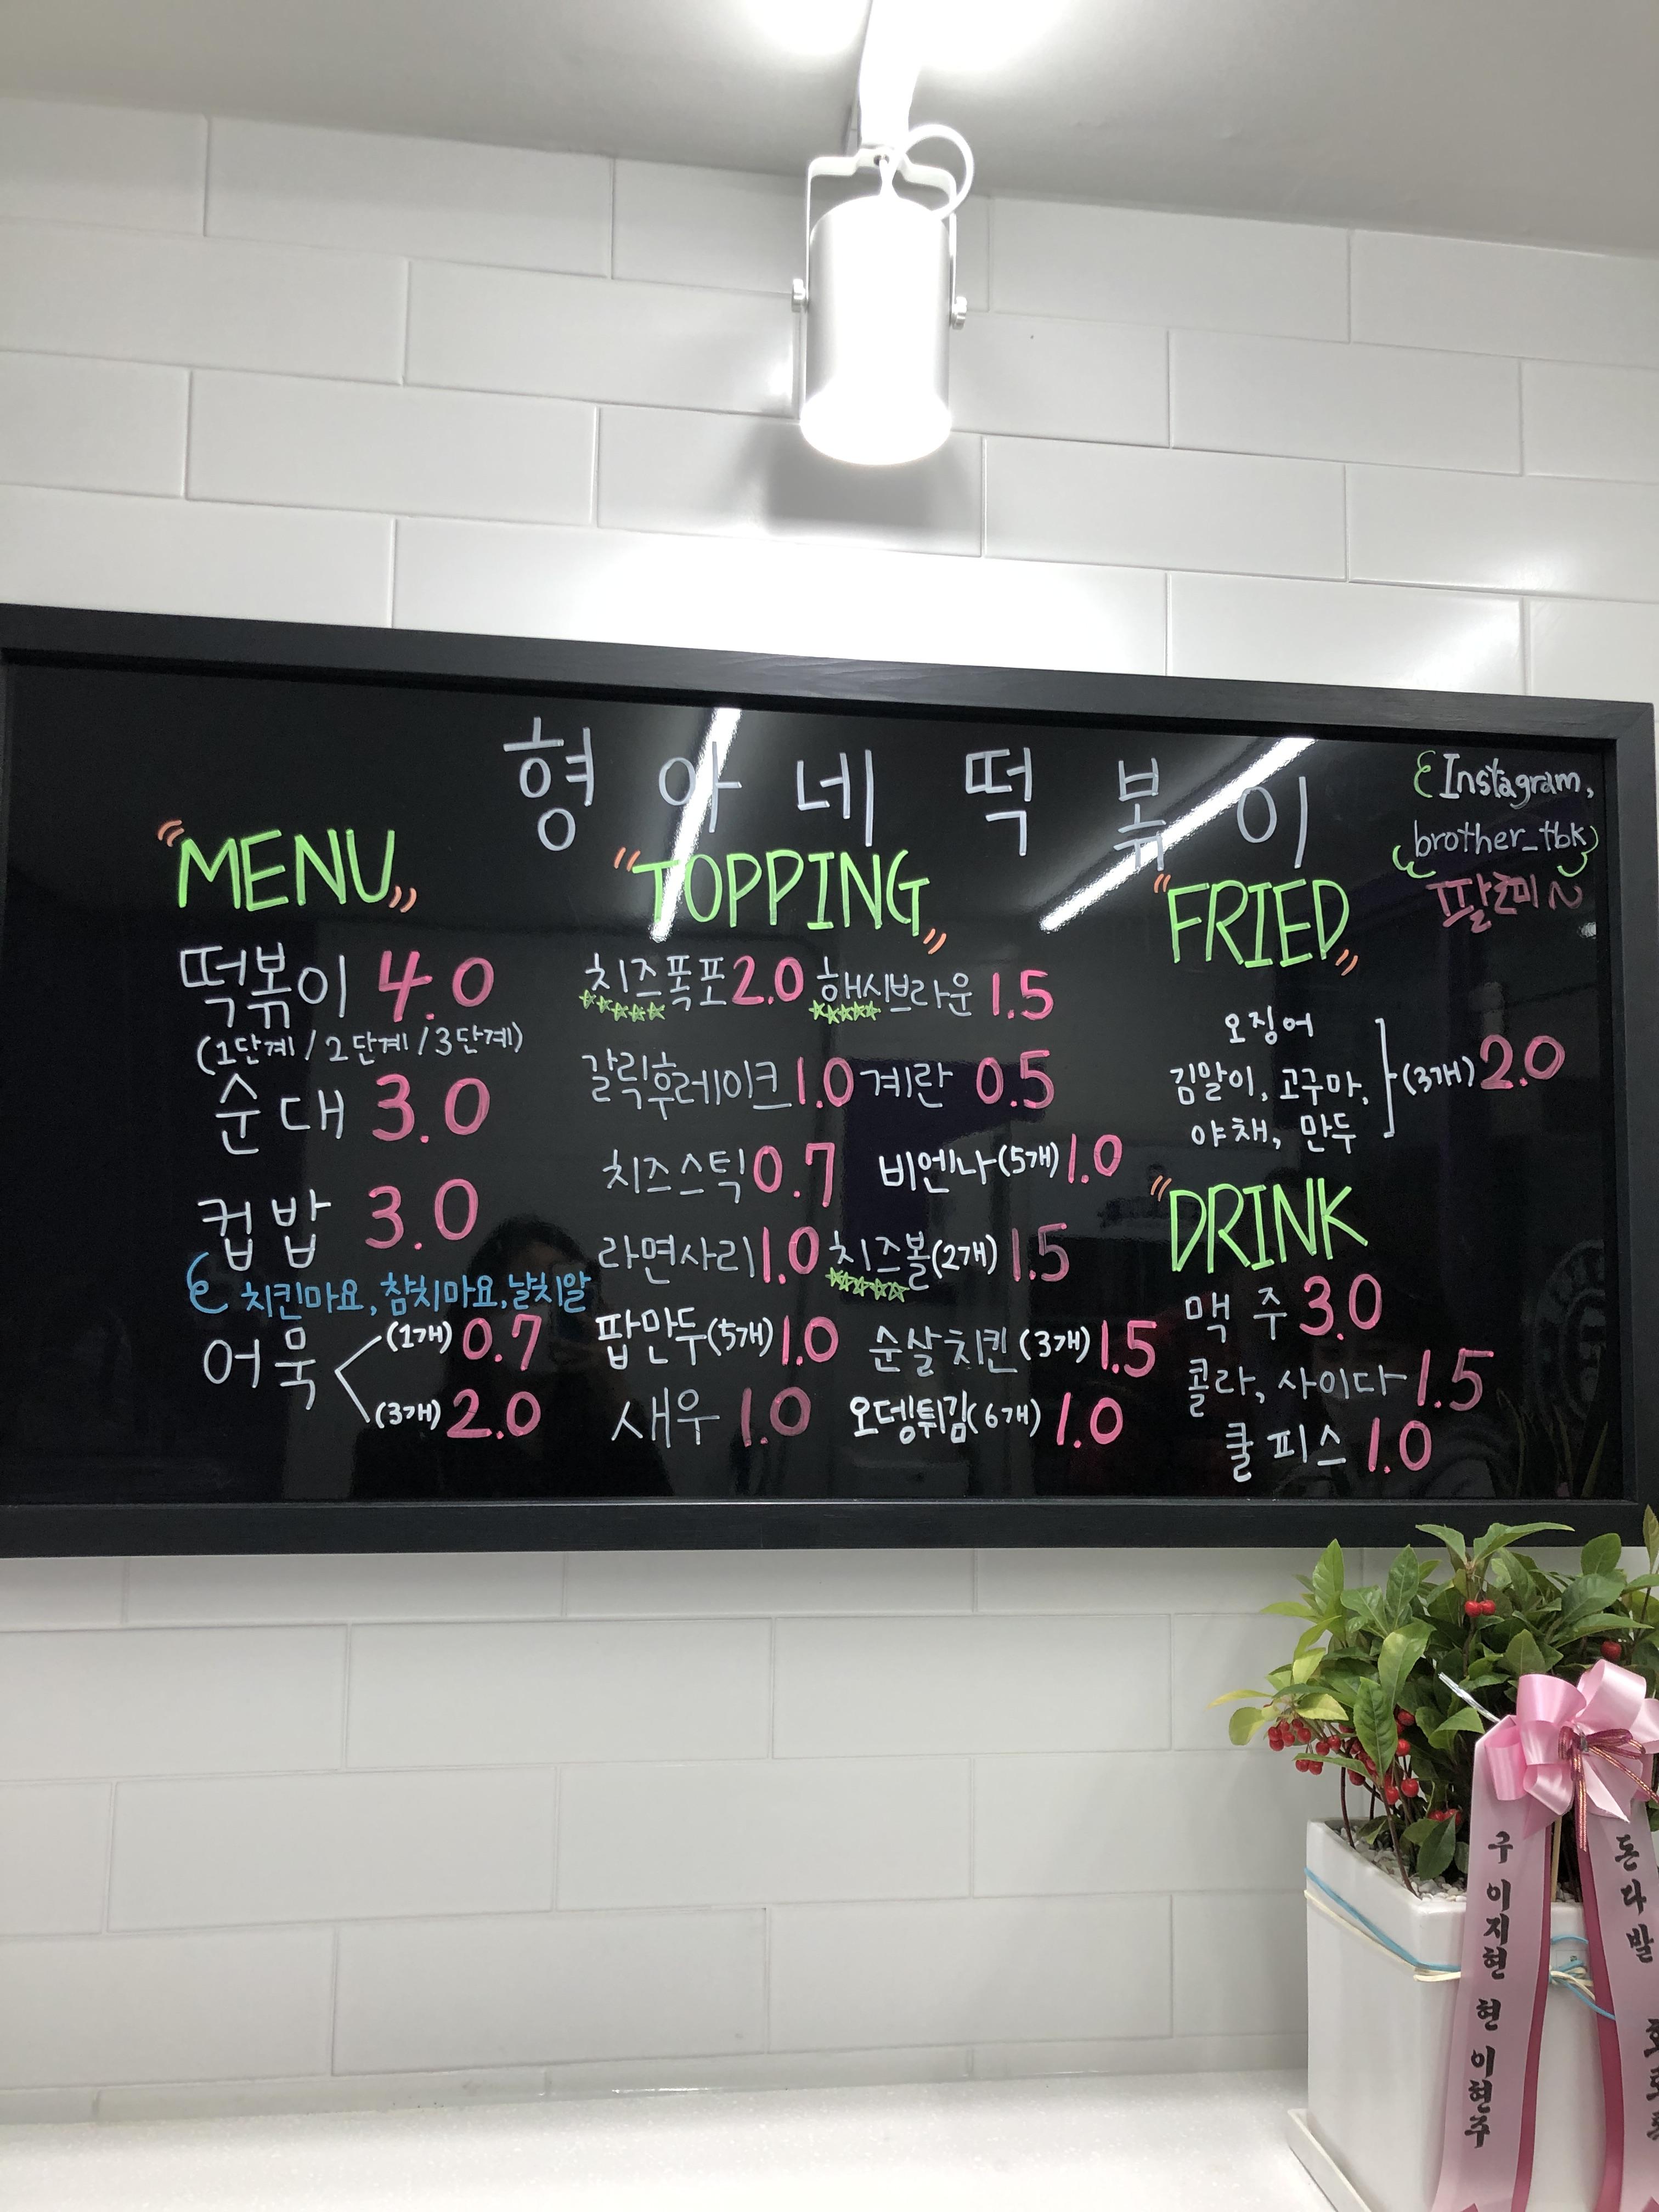 형아네 떡볶이
Instagram,
brother_tbk
팔로미~
"MENU"
떡볶이 4.0
(1단계/2단계/3단계)
순대 3.0
컵밥 3.0
치킨마요, 참치마요, 날치알
어묵 (1개) 0.7
(3개) 2.0
"TOPPING"
치즈폭포 2.0 해시브라운 1.5
갈릭후레이크 1.0 계란 0.5
치즈스틱 0.7 비엔나(5개) 1.0
라면사리 1.0 치즈볼(2개) 1.5
팝만두(5개) 1.0 순살치킨(3개) 1.5
새우 1.0 오뎅튀김(6개) 1.0
"FRIED"
오징어
김말이, 고구마, (3개) 2.0
야채, 만두
"DRINK
맥주 3.0
콜라, 사이다 1.5
쿨피스 1.0
구 이지현 현 이현주
돈다발